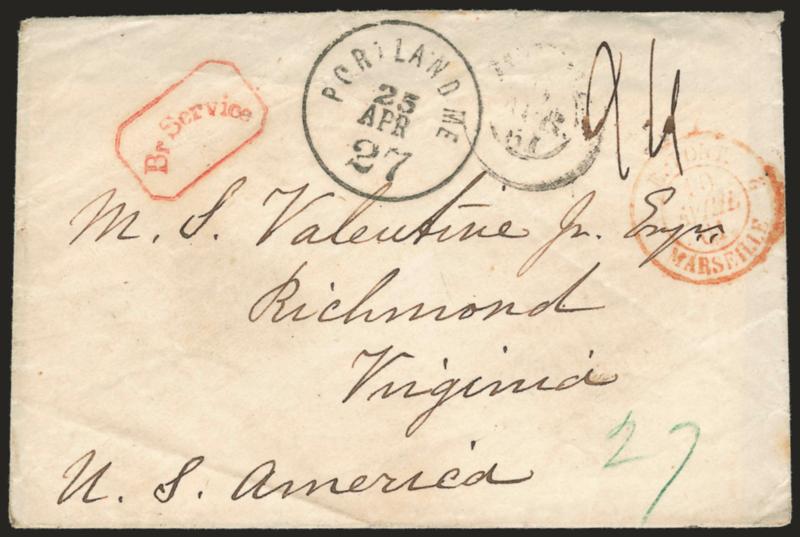 Br Service
PORTLAND ME
25
APR
27
MARSEILLE
M. S. Valentine Jr. Esqr
Richmond
Virginia
27
U. S. America